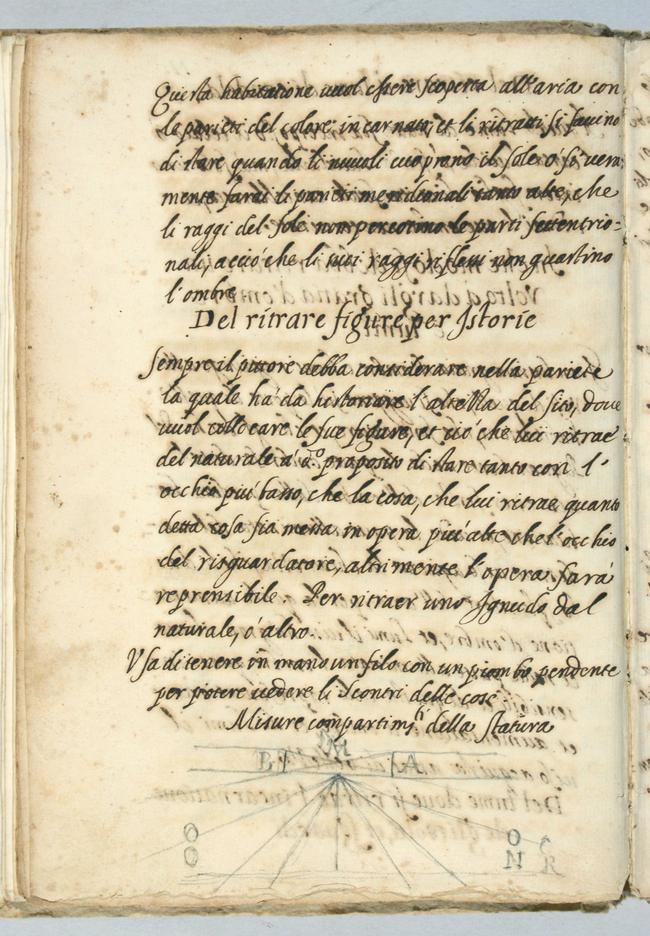 Questa habitatione vuol essere scoperta all'aria con
le parieti del colore incarnato, et li ritratti si faccino
di stare quando li nuvoli cuoprono il sole o' si vera,
mente farai li parieti meridionali tanto alte, che
li raggi del sole non percotino le parti settentrio=
nali, acciò che li suoi raggi riflessi non guastino
l'ombre
Del ritrare figure per Istorie
Sempre il pittore debba considerare nella pariete
la quale hà da historiare l'altezza del sito, dove
vuol collocare le sue figure, et ciò che lui ritrae
del naturale à d.o proposito di stare tanto con l'
occhio più basso, che la cosa, che lui ritrae quanto
detta cosa sia messa in opera più alte che l'occhio
del risguardatore, altrimente l'opera sarà
reprensibile. Per ritraer uno Ignudo dal
naturale, ò altro.
Usa di tenere in mano un filo con un piombo pendente
per potere vedere li scontri delle cose
Misure compartim.ti della statura
M
B A
O O
O N R